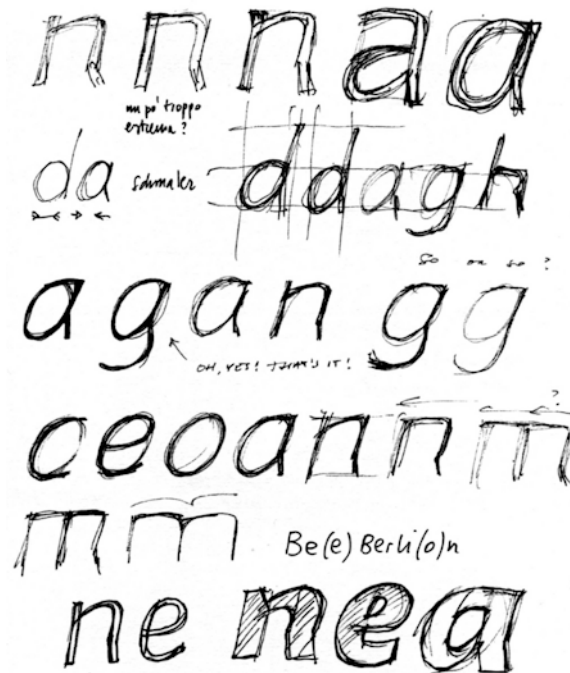 n n n a a
un po' troppo
estrema?
da schmaler ddagh
so or so ?
a g a n g g
OH, YES! THAT'S IT!
c e o a n n m
?
m m
Be(e) Berli(o)n
ne nea